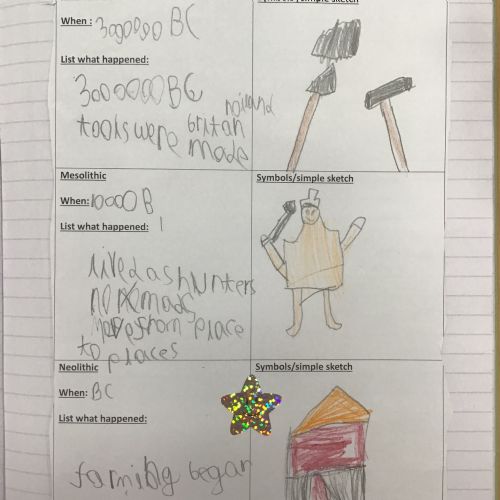 Symbols/simple sketch
When : 3000000 BC
List what happened:
3000000 BC
tools were britan
made
Mesolithic
Symbols/simple sketch
When: 10000 B
List what happened:
lived as hunters
nomads
moves from place
to places
Neolithic
Symbols/simple sketch
When: BC
List what happened:
farming began